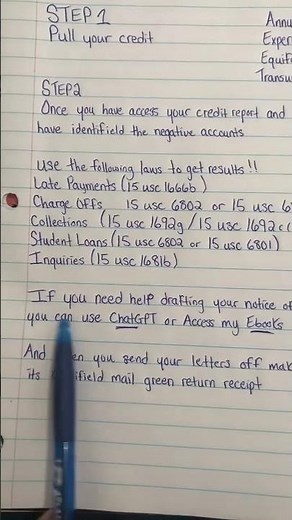 STEP 1
Pull your credit
Annu
Exper
Equif
Transu
STEP2
Once you have access your credit report and
have identifield the negative accounts
use the following laws to get results!!
Late Payments (15 usc 1666b)
Charge Offs 15 usc 6802 or 15 usc 6
Collections (15 usc 1692g/15 usc 1692c(
Student Loans (15 usc 6802 or 15 usc 6801)
Inquiries (15 usc 1681b)
If you need help drafting your notice of
you can use ChatGPT or Access my Ebooks
And you send your letters off mak
its mail green return receipt